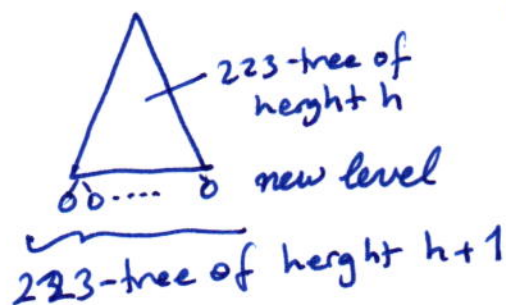 223-tree of
height h
new level
223-tree of height h+1